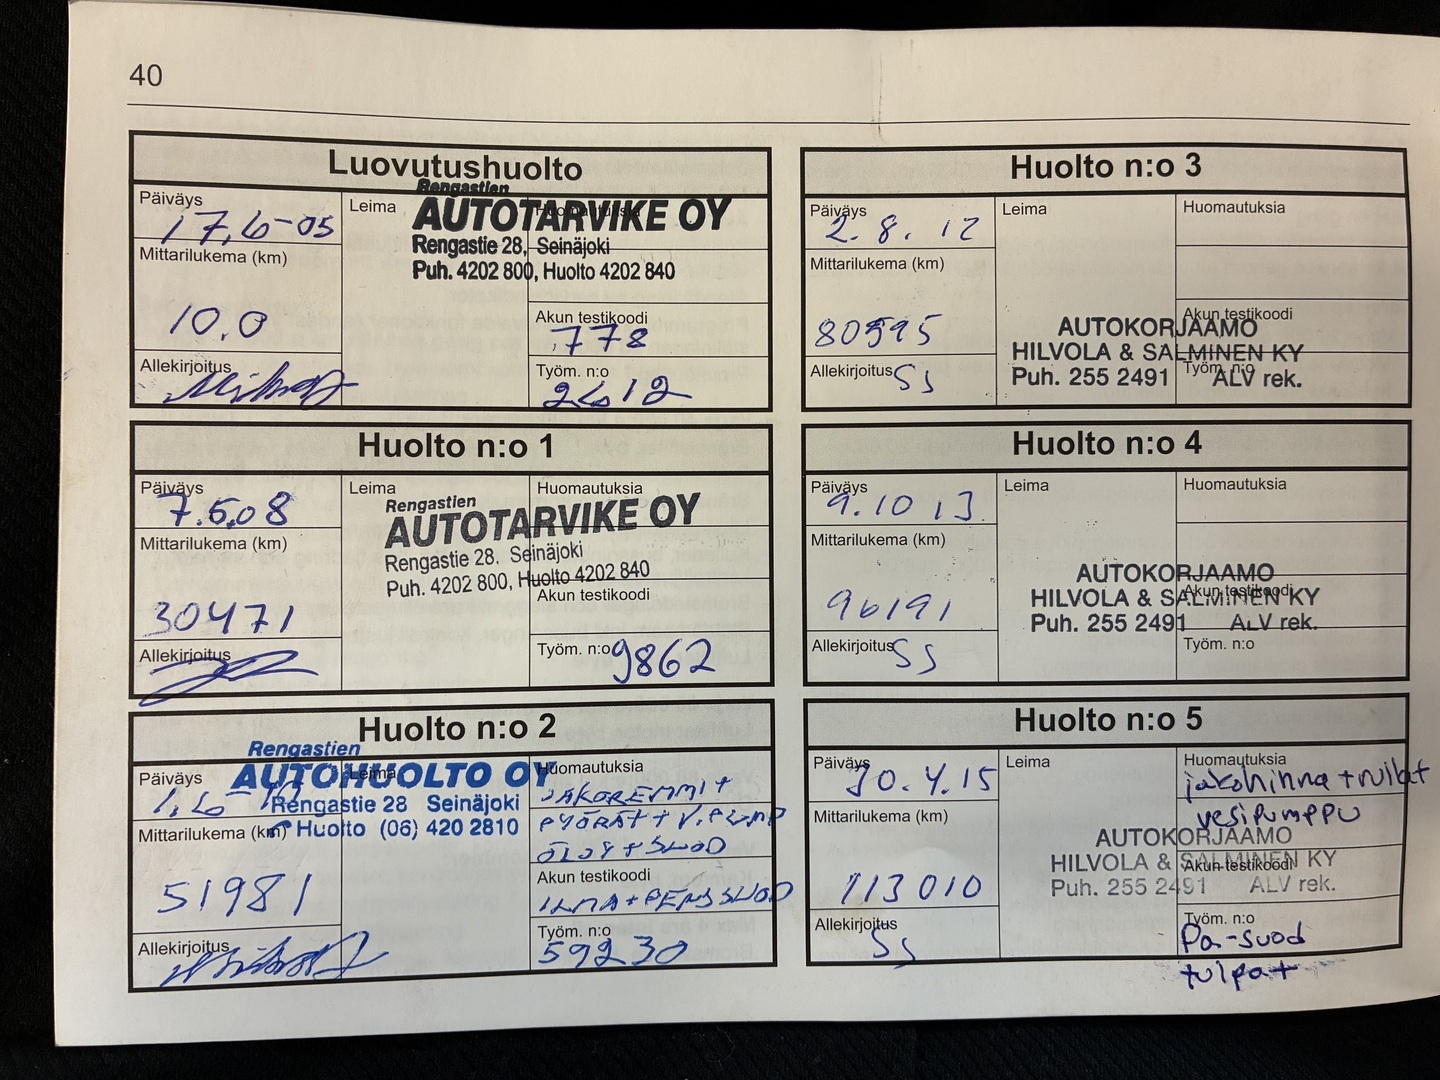 40
Luovutushuolto
Päiväys
17.6-05
Leima
Rengastien
AUTOTARVIKE OY
Rengastie 28, Seinäjoki
Puh. 4202 800, Huolto 4202 840
Huomautuksia
Mittarilukema (km)
10.0
Akun testikoodi
778
Allekirjoitus
Työm. n:o
Huolto n:o 1
Päiväys
7.5.08
Leima
Rengastien
AUTOTARVIKE OY
Rengastie 28. Seinäjoki
Puh. 4202 800, Huolto 4202 840
Huomautuksia
Mittarilukema (km)
30471
Akun testikoodi
Allekirjoitus
Työm. n:o 9862
Huolto n:o 2
Päiväys
Leima
Rengastien
AUTOHUOLTO OY
Rengastie 28 Seinäjoki
Huolto (06) 420 2810
Huomautuksia
JAKOREMMI +
PYÖRÄT + V.PUMP
ÖLJY + SUOD
Mittarilukema (km)
51981
Akun testikoodi
ILMA +
Allekirjoitus
Työm. n:o
59230
Huolto n:o 3
Päiväys
2.8.12
Leima
Huomautuksia
Mittarilukema (km)
80595
Akun testikoodi
AUTOKORJAAMO
HILVOLA & SALMINEN KY
Puh. 255 2491 ALV rek.
Allekirjoitus
SS
Työm. n:o
Huolto n:o 4
Päiväys
9.10 13
Leima
Huomautuksia
Mittarilukema (km)
96191
Akun testikoodi
AUTOKORJAAMO
HILVOLA & SALMINEN KY
Puh. 255 2491 ALV rek.
Allekirjoitus
SS
Työm. n:o
Huolto n:o 5
Päiväys
30.4.15
Leima
Huomautuksia
jakohihna + rullat
vesipumppu
Mittarilukema (km)
113010
Akun testikoodi
AUTOKORJAAMO
HILVOLA & SALMINEN KY
Puh. 255 2491 ALV rek.
Allekirjoitus
SS
Työm. n:o
Pa-suod
tulpat